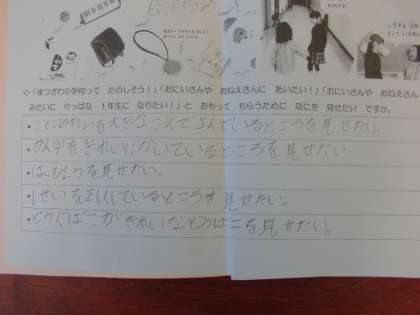 ○「まつざわ小学校って たのしそう!」「おにいさんや おねえさんに あいたい!」「おにいさんや おねえさん
みたいに りっぱな 1年生に なりたい!」と おもって もらうために なにを 見せたい ですか。
・こくごのきょうかしょを大きなこえでよんでいるところを見せたい。
・かん字をきれいにかいているところを見せたい
・はっぴょうを見せたい。
・しせいを正しくしているところを見せたい。
・どうぐばこがきれいなどうぐばこを見せたい。